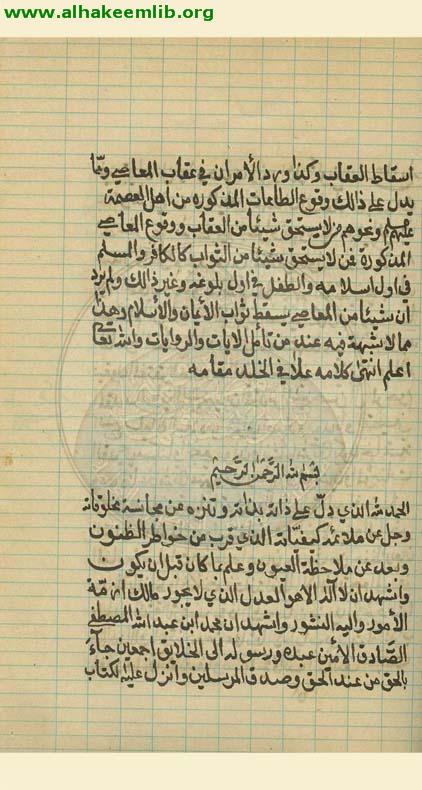 www.alhakeemlib.org
اسقاط العقاب وكذا ورد الأمران في عقاب المعاصي وممّا
يدل على ذالك وقوع الطاعات المذكوره من اهل العصمة
عليهم ونحوهم ممن لا يستحق شيئا من العقاب ووقوع المعاصي
المذكورة ممن لا يستحق شيئا من الثواب كالكافر والمسلم
في اول اسلامه والطفل في اول بلوغه وغير ذالك ولم يرد
ان شيئا من المعاصي يسقط ثواب الأيمان والأسلام وهذا
مما لا شبهة فيه عند من تأمل الايات والروايات والله تعالى
اعلم انتهى كلامه علا في الخلد مقامه
بسم الله الرحمن الرحيم
الحمد لله الذي دلّ على ذاته بذاته وتنزه عن مجانسة مخلوقاته
وجل عن ملائمة كيفيّاته الذي قرب من خواطر الظنون
وبعد عن ملاحظة العيون وعلم بما كان قبل ان يكون
واشهد ان لا آله الا هو العدل الذي لا يجور مالك ازمّة
الأمور واليه النشور واشهد ان محمد ابن عبد الله المصطفى
الصّادق الأمين عبده ورسوله الى الخلايق اجمعين جآء
بالحق من عند الحق وصدق المرسلين وانزل عليه لكتاب